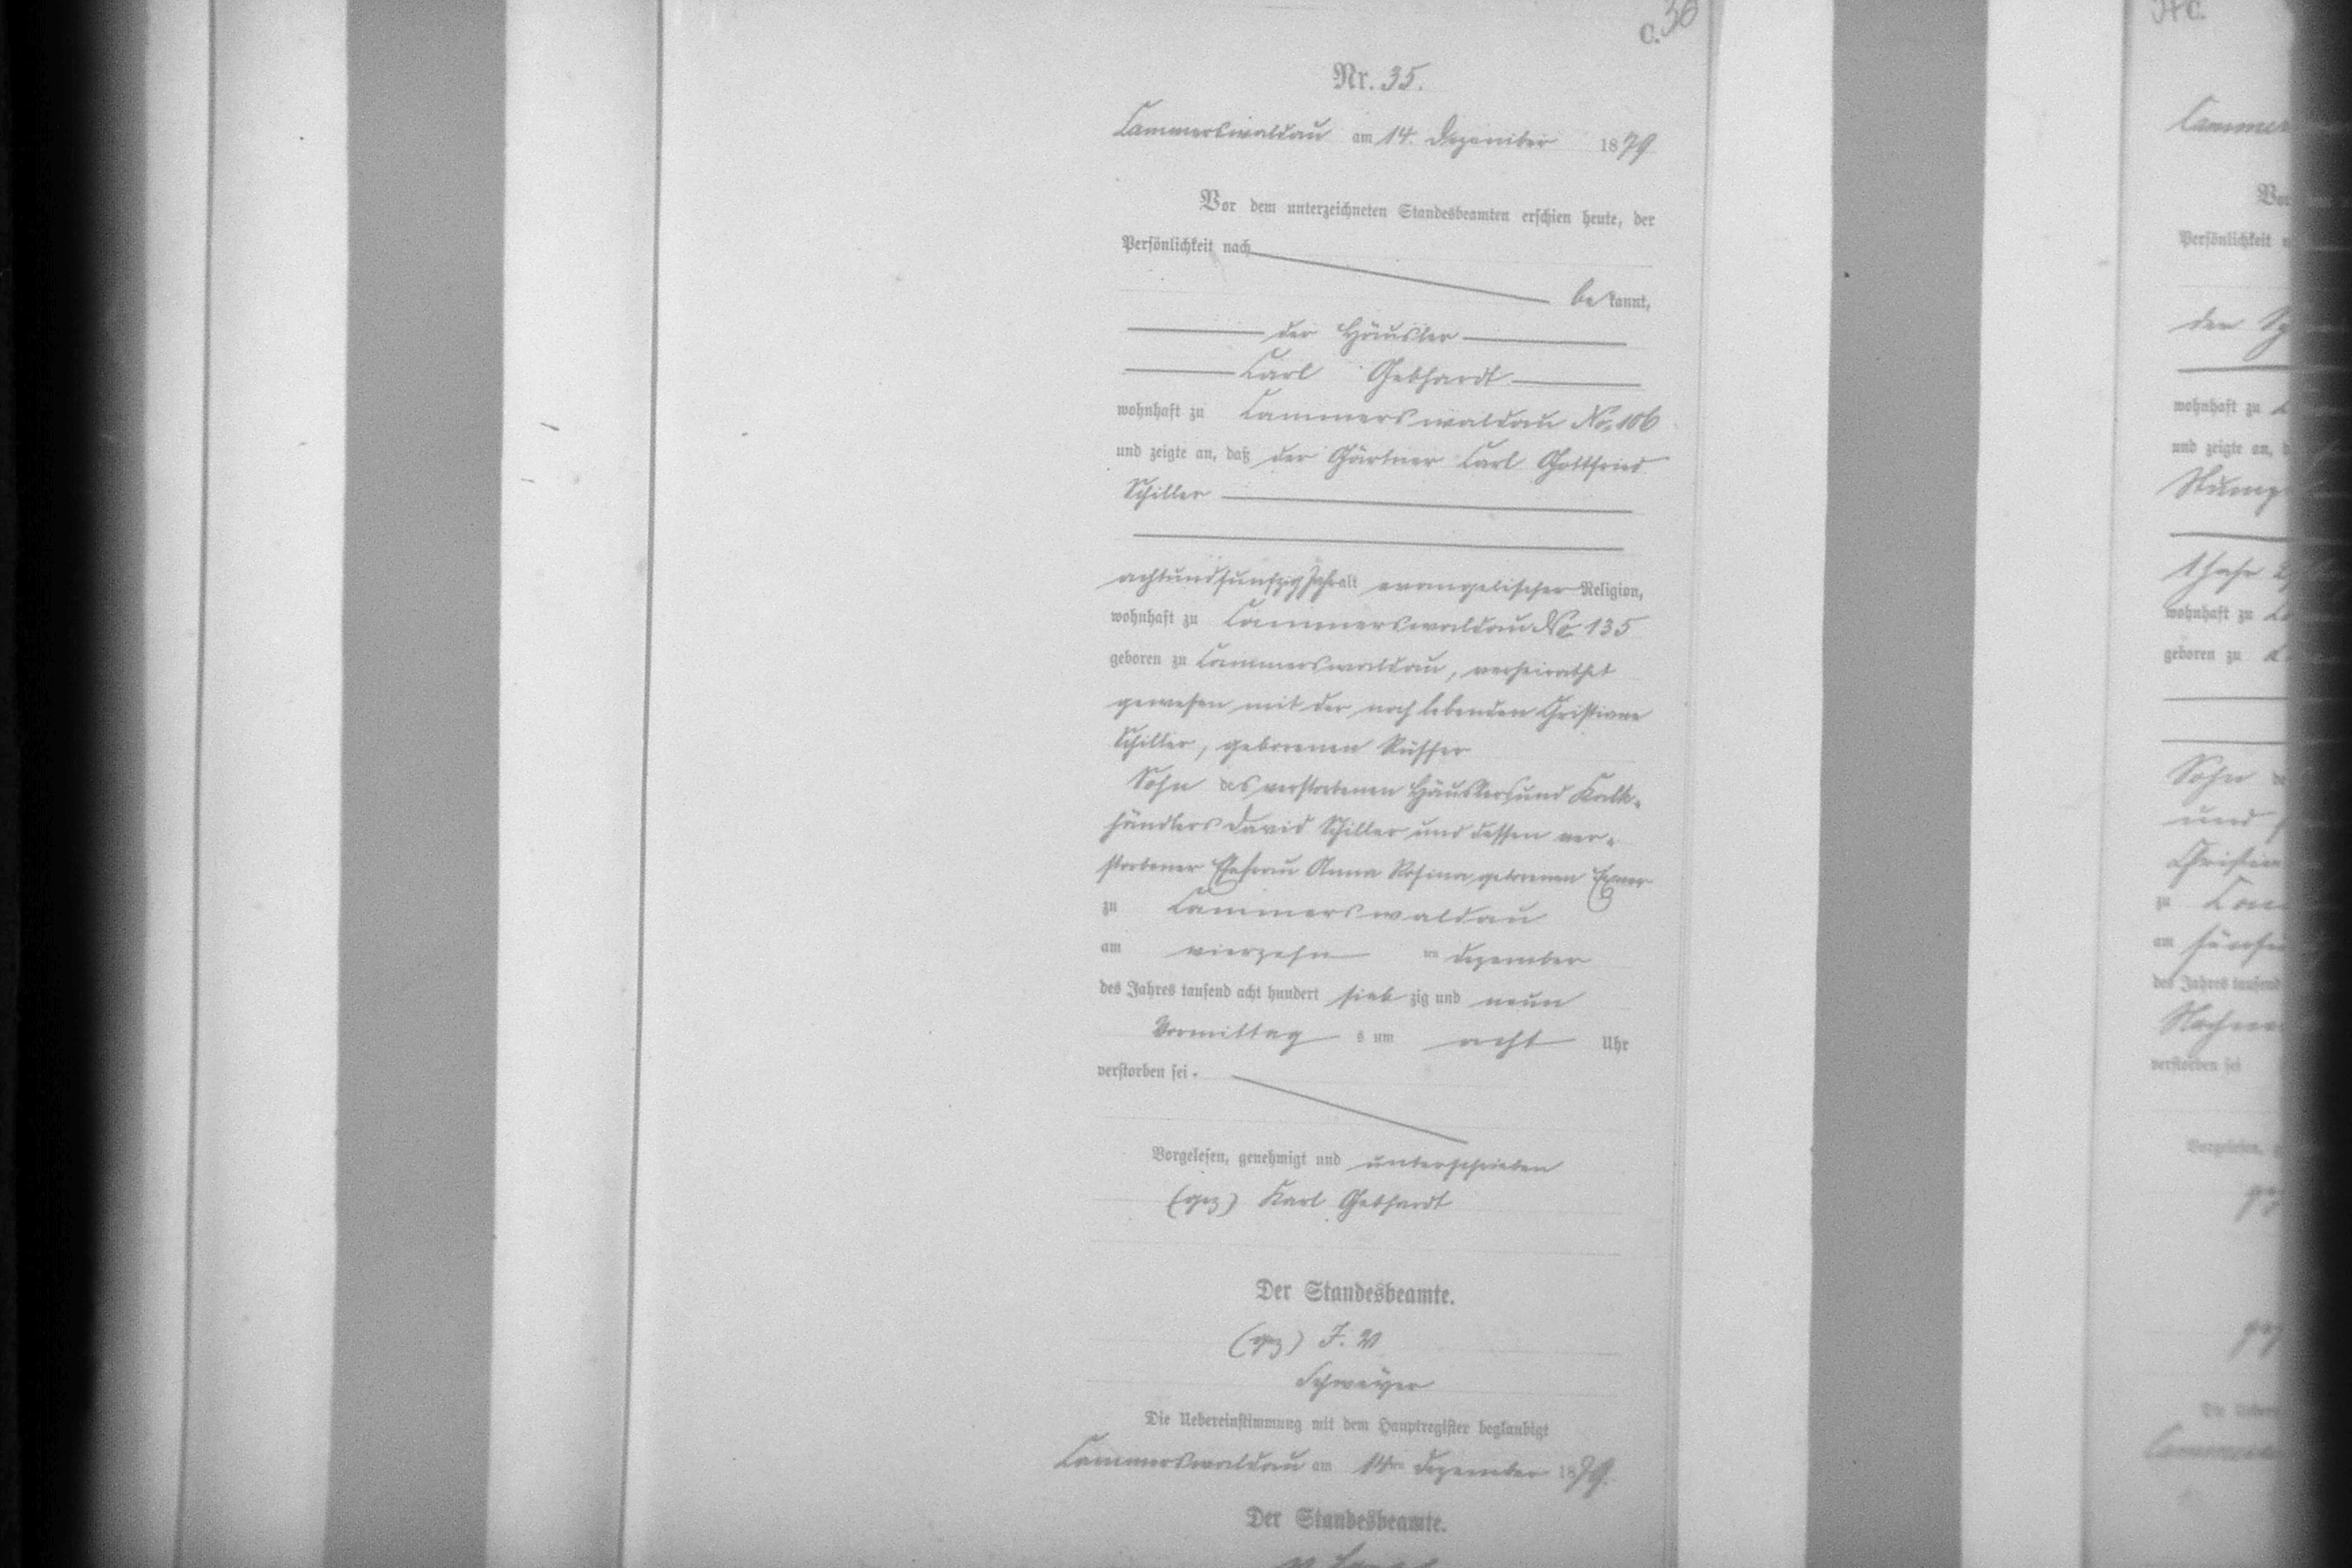 C. 36
Nr. 35.
Cammerswaldau am 14. Dezember 1879
Vor dem unterzeichneten Standesbeamten erschien heute, der
Persönlichkeit nach
bekannt,
der Häusler
Carl Gebhardt
wohnhaft zu Cammerswaldau No. 106
und zeigte an, daß der Gärtner Carl Gottfried
Schiller
achtundfunfzig Jahr alt evangelischer Religion,
wohnhaft zu Cammerswaldau No. 135
geboren zu Cammerswaldau, verheirathet
gewesen mit der noch lebenden Christiane
Schiller, geborenen Rüffer
Sohn des verstorbenen Häuslers und Kalk-
händlers David Schiller und dessen ver-
storbener Ehefrau Anna Rosina, geborenen Exner
zu Cammerswaldau
am vierzehn ten Dezember
des Jahres tausend acht hundert siebzig und neun
Vormittag s um acht Uhr
verstorben sei.
Vorgelesen, genehmigt und unterschrieben
(gez) Karl Gebhardt
Der Standesbeamte.
(gez) I. V
Die Uebereinstimmung mit dem Hauptregister beglaubigt
Cammerswaldau am 14ten Dezember 1879.
Der Standesbeamte.
Cammer
Vor
Persönlichkeit
der
wohnhaft zu
und zeigte an,
wohnhaft zu
geboren zu
Sohn de
und
Christian
zu
am
des Jahres tausend
verstorben sei
Vorgelesen,
gez
gez